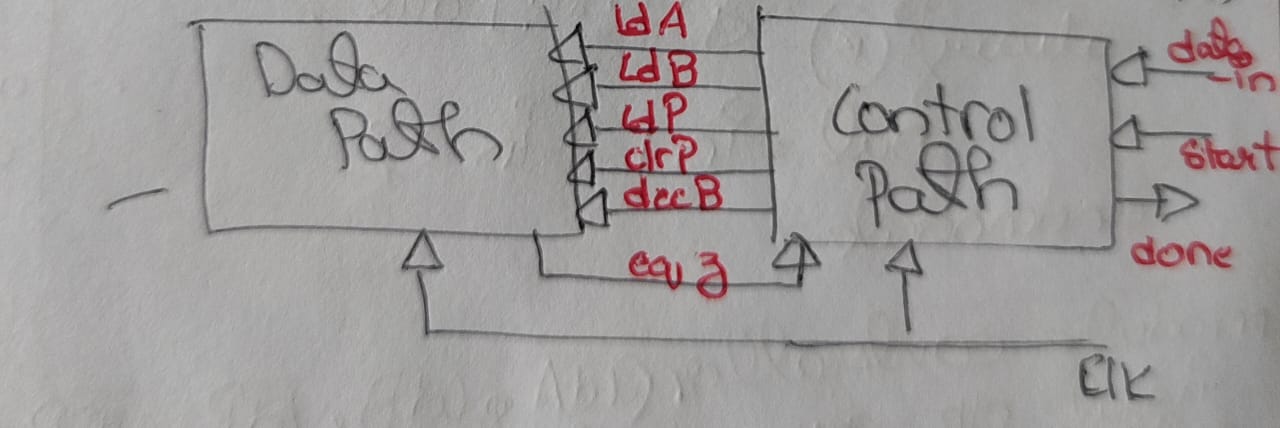 Data
Path
ldA
LdB
ldP
clrP
decB
eqz
Control
Path
data
-in
start
done
Clk